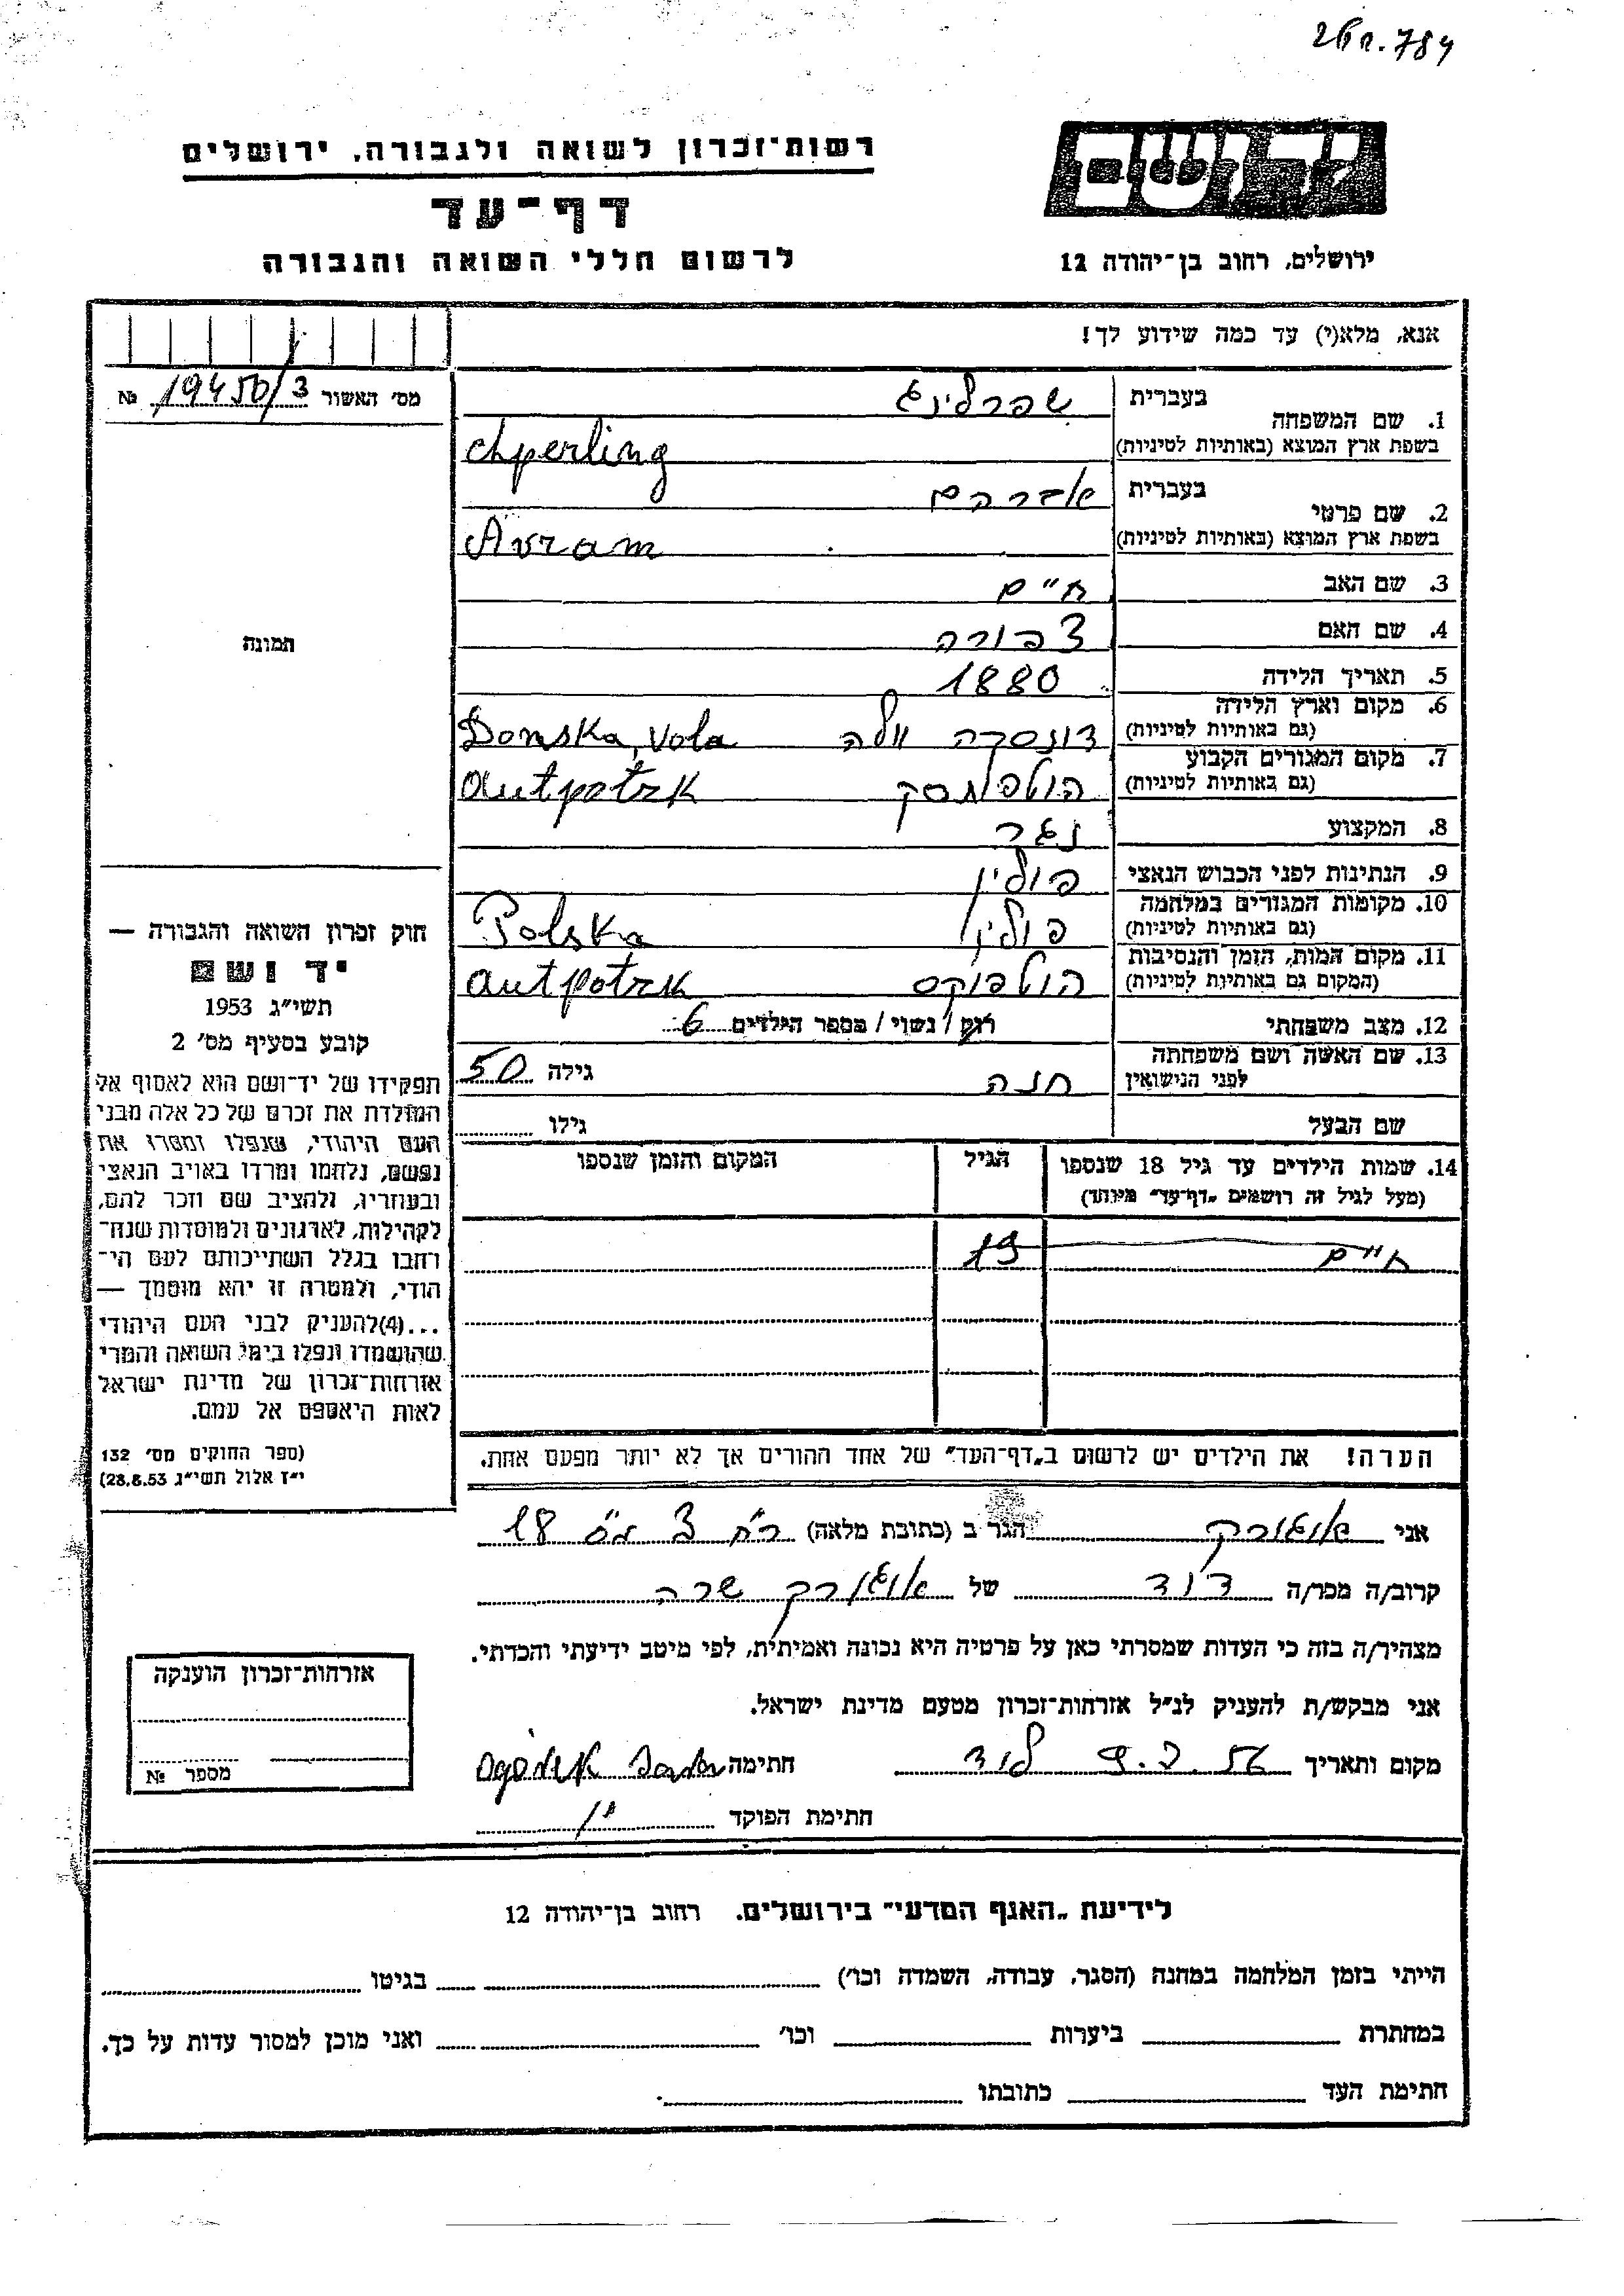 784
רשות־זכרון לשואה ולגבורה, ירושלים
יד ושם
דף־עד
לרשום חללי השואה והגבורה
ירושלים, רחוב בן־יהודה 12
אנא, מלא(י) עד כמה שידוע לך!
מס׳ האשור 19450/3 №
1. שם המשפחה בעברית שפרלינג
בשפת ארץ המוצא (באותיות לטיניות) chperling
2. שם פרטי בעברית אברהם
בשפת ארץ המוצא (באותיות לטיניות) Avram
3. שם האב חיים
4. שם האם צפורה
5. תאריך הלידה 1880
6. מקום וארץ הלידה (גם באותיות לטיניות) דונסקה וולה Donska, Vola
7. מקום המגורים הקבוע (גם באותיות לטיניות) autpotrk
8. המקצוע נגר
9. הנתינות לפני הכבוש הנאצי פולין
10. מקומות המגורים במלחמה (גם באותיות לטיניות) פולין Polska
11. מקום המות, הזמן והנסיבות (המקום גם באותיות לטיניות) autpotrk
12. מצב משפחתי רוק / נשוי / מספר הילדים 6
13. שם האשה ושם משפחתה לפני הנישואין חנה גילה 50
שם הבעל גילו
14. שמות הילדים עד גיל 18 שנספו הגיל המקום והזמן שנספו
(מעל לגיל זה רושמים „דף־עד״ מיוחד)
חיים 19
הערה! את הילדים יש לרשום ב„דף־העד״ של אחד ההורים אך לא יותר מפעם אחת.
תמונה
חוק זכרון השואה והגבורה —
יד ושם
תשי״ג 1953
קובע בסעיף מס׳ 2
תפקידו של יד־ושם הוא לאסוף אל
המולדת את זכרם של כל אלה מבני
העם היהודי, שנפלו ומסרו את
נפשם, נלחמו ומרדו באויב הנאצי
ובעוזריו, ולהציב שם וזכר להם,
לקהילות, לארגונים ולמוסדות שנח־
רחבו בגלל השתייכותם לעם הי־
הודי, ולמטרה זו יהא מוסמך —
...(4)להעניק לבני העם היהודי
שהושמדו ונפלו בימי השואה והמרי
אזרחות־זכרון של מדינת ישראל
לאות היאספם אל עמם.
(ספר החוקים מס׳ 132
י״ז אלול תשי״ג 28.8.53)
אני אוגורק הגר ב (כתובת מלאה) רח צ מס 18
קרוב/ה מכר/ה דוד של אוגורק שרה
מצהיר/ה בזה כי העדות שמסרתי כאן על פרטיה היא נכונה ואמיתית, לפי מיטב ידיעתי והכרתי.
אני מבקש/ת להעניק לנ״ל אזרחות־זכרון מטעם מדינת ישראל.
מקום ותאריך לוד חתימה
חתימת הפוקד
אזרחות־זכרון הוענקה
מספר №
לידיעת „האגף המדעי״ בירושלים, רחוב בן־יהודה 12
הייתי בזמן המלחמה במחנה (הסגר, עבודה, השמדה וכו׳) בגיטו
במחתרת ביערות וכו׳ ואני מוכן למסור עדות על כך.
חתימת העד כתובתו